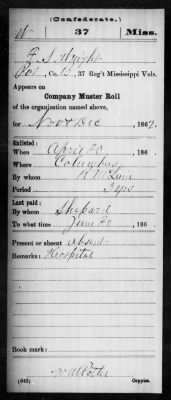 (Confederate.)
W 37 Miss.
E. S. Wright
Co. B, 37 Reg't Mississippi Vols.
Appears on
Company Muster Roll
of the organization named above,
for Nov & Dec, 1862.
Enlisted:
When April 20, 186 .
Where Columbus
By whom
Period 3 yrs
Last paid:
By whom Shepard
To what time June 30, 186 .
Present or absent Absent
Remarks: Hospital
Book mark:
(642) Copyist.